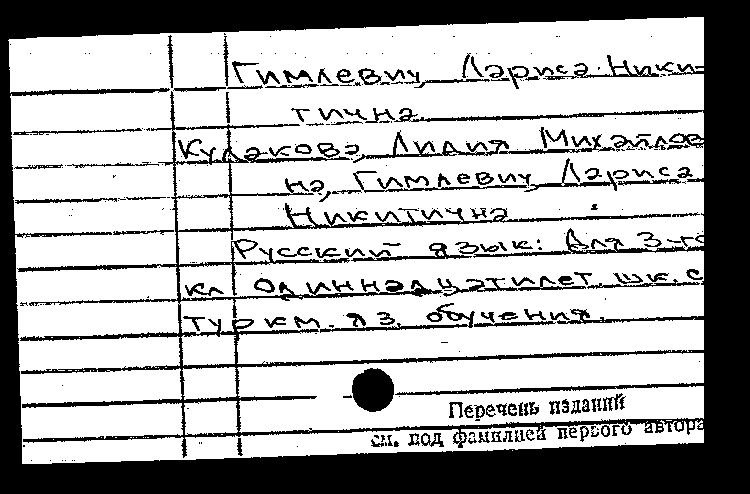 Гимлевич, Лариса Ники-
тична.
Кулакова, Лидия Михайлов
на, Гимлевич, Лариса
Никитична.
Русский язык: Для 3-го
кл одиннадцатилет. шк. с
туркм. яз. обучения.
Перечень изданий
см. под фамилией первого автора